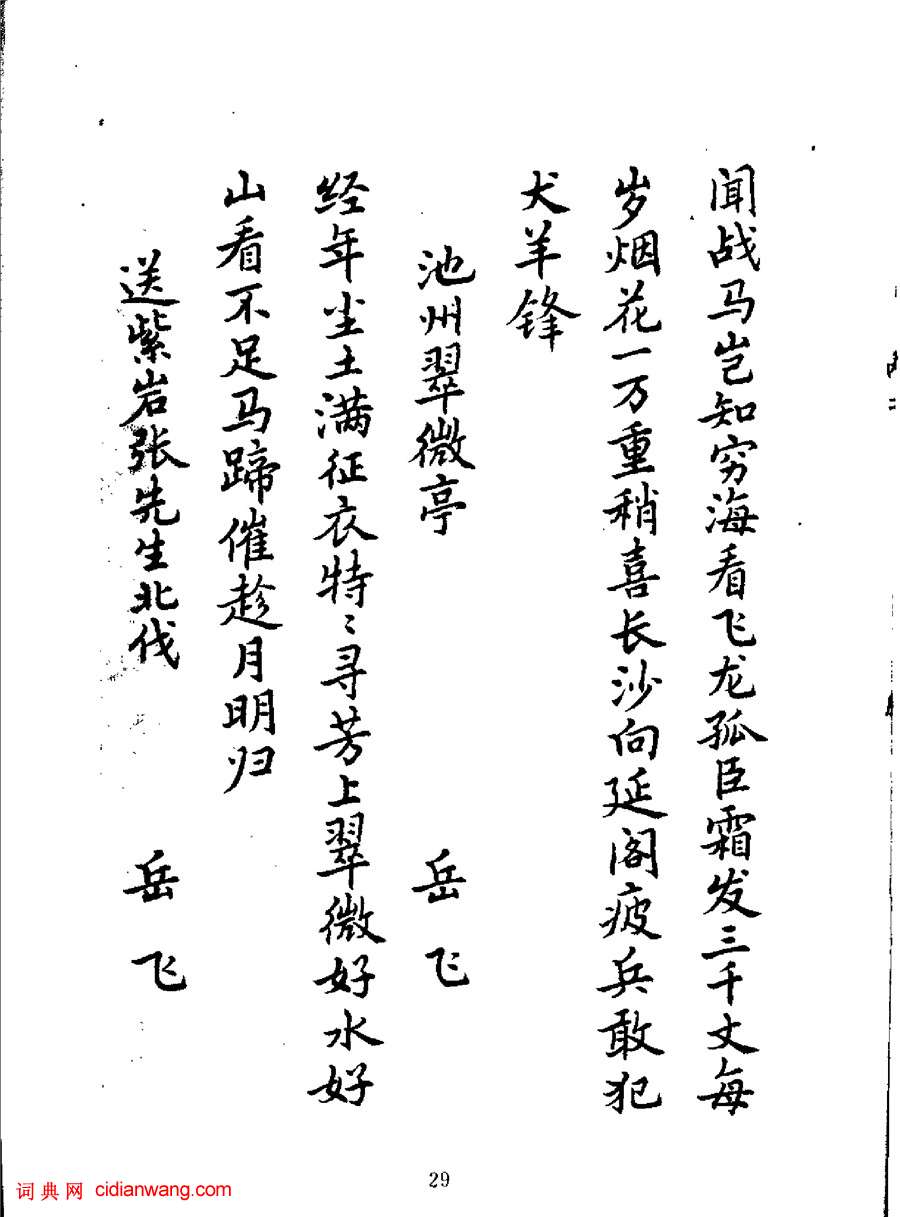 闻战马岂知穷海看飞龙孤臣霜发三千丈每
岁烟花一万重稍喜长沙向延阁疲兵敢犯
犬羊锋
池州翠微亭 岳飞
经年尘土满征衣特〻寻芳上翠微好水好
山看不足马蹄催趁月明归
送紫岩张先生北伐 岳飞
29
词典网 cidianwang.com